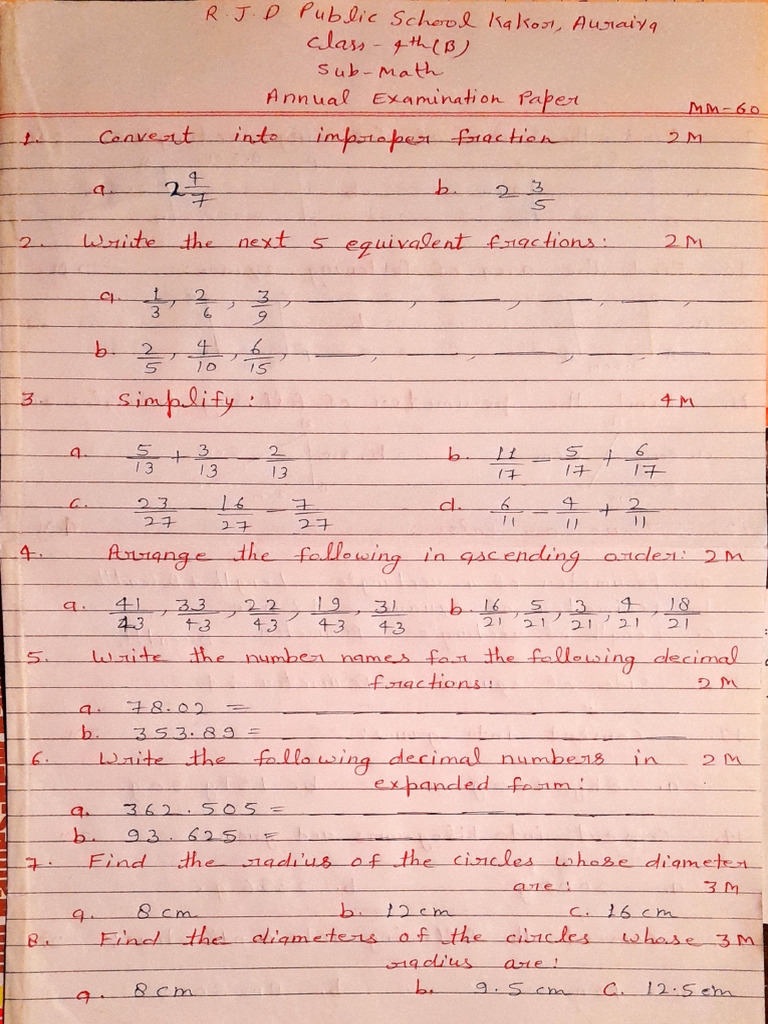 R.J.D Public School Kakor, Auraiya
Class - 4th(B)
Sub-Math
Annual Examination Paper MM-60
1. Convert into improper fraction 2M
a. 2 4/7 b. 2 3/5
2. Write the next 5 equivalent fractions: 2M
a. 1/3, 2/6, 3/9, ____, ____, ____, ____, ____,
b. 2/5, 4/10, 6/15, ____, ____, ____, ____, ____
3. Simplify: 4M
a. 5/13 + 3/13 - 2/13 b. 11/17 - 5/17 + 6/17
c. 23/27 - 16/27 - 7/27 d. 6/11 - 4/11 + 2/11
4. Arrange the following in ascending order: 2M
a. 41/43, 33/43, 22/43, 19/43, 31/43 b. 16/21, 5/21, 3/21, 4/21, 18/21
5. Write the number names for the following decimal
fractions: 2M
a. 78.02 = ____
b. 353.89 = ____
6. Write the following decimal numbers in 2M
expanded form:
a. 362.505 = ____
b. 93.625 = ____
7. Find the radius of the circles whose diameter
are: 3M
a. 8 cm b. 12 cm c. 16 cm
8. Find the diameters of the circles whose 3M
radius are:
a. 8 cm b. 9.5 cm C. 12.5 cm